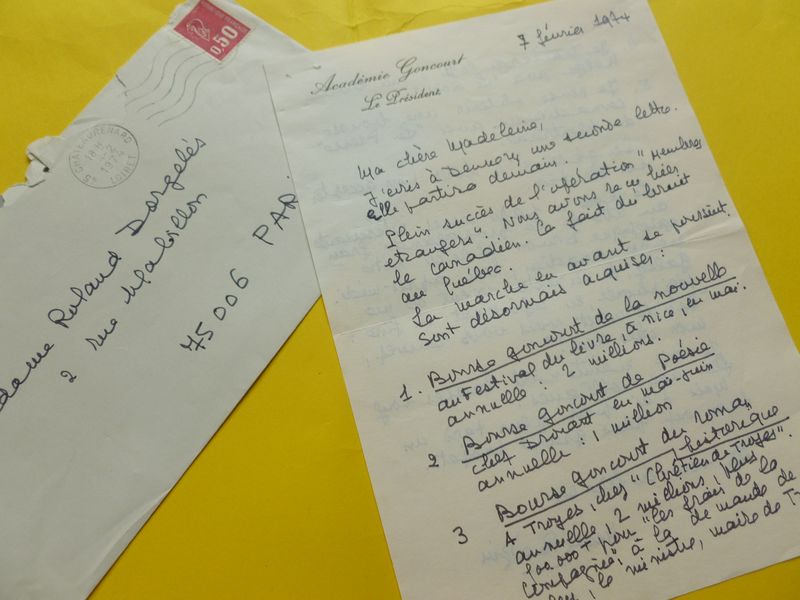 0,50
45 CHATEAURENARD
18 H
9 - 2
1974
LOIRET
Madame Roland Dorgelès
2 rue Mabillon
75006 PAR
7 février 1974
Académie Goncourt
Le Président
Ma chère Madeleine,
J'écris à une seconde lettre.
elle partira demain.
Plein succès de l'opération "Membres
étrangers". Nous avons reçu hier
le canadien. Ça fait du bruit
au Québec.
La marche en avant se poursuit.
Sont désormais acquises :
1. Bourse Goncourt de la nouvelle
au Festival du livre, à Nice, en mai.
annuelle : 2 millions.
2 Bourse Goncourt de Poésie
chez Drouant en mai-juin
annuelle : 1 million
3 Bourse Goncourt du roman
historique
A Troyes, chez "Chrétien de Troyes".
annuelle, 2 millions, plus
100.000 F pour "les frais de la
compagnie", à la demande de
le ministre, maire de T